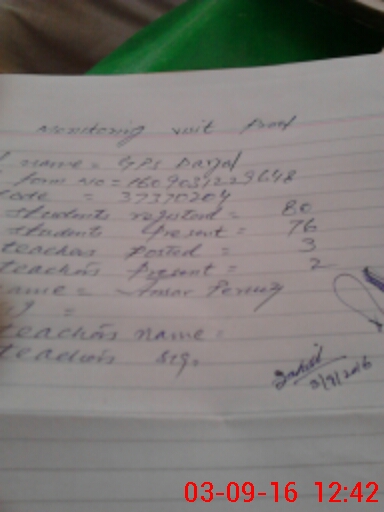 Monitoring visit Proof
name = GPS Daryal
form No = 1609031229648
code = 37370204
students registered = 80
students present = 76
teachers posted = 3
teachers present = 2
ame = Ansar Pervez
=
teachers name =
teachers sig.
3/9/2016
03-09-16 12:42